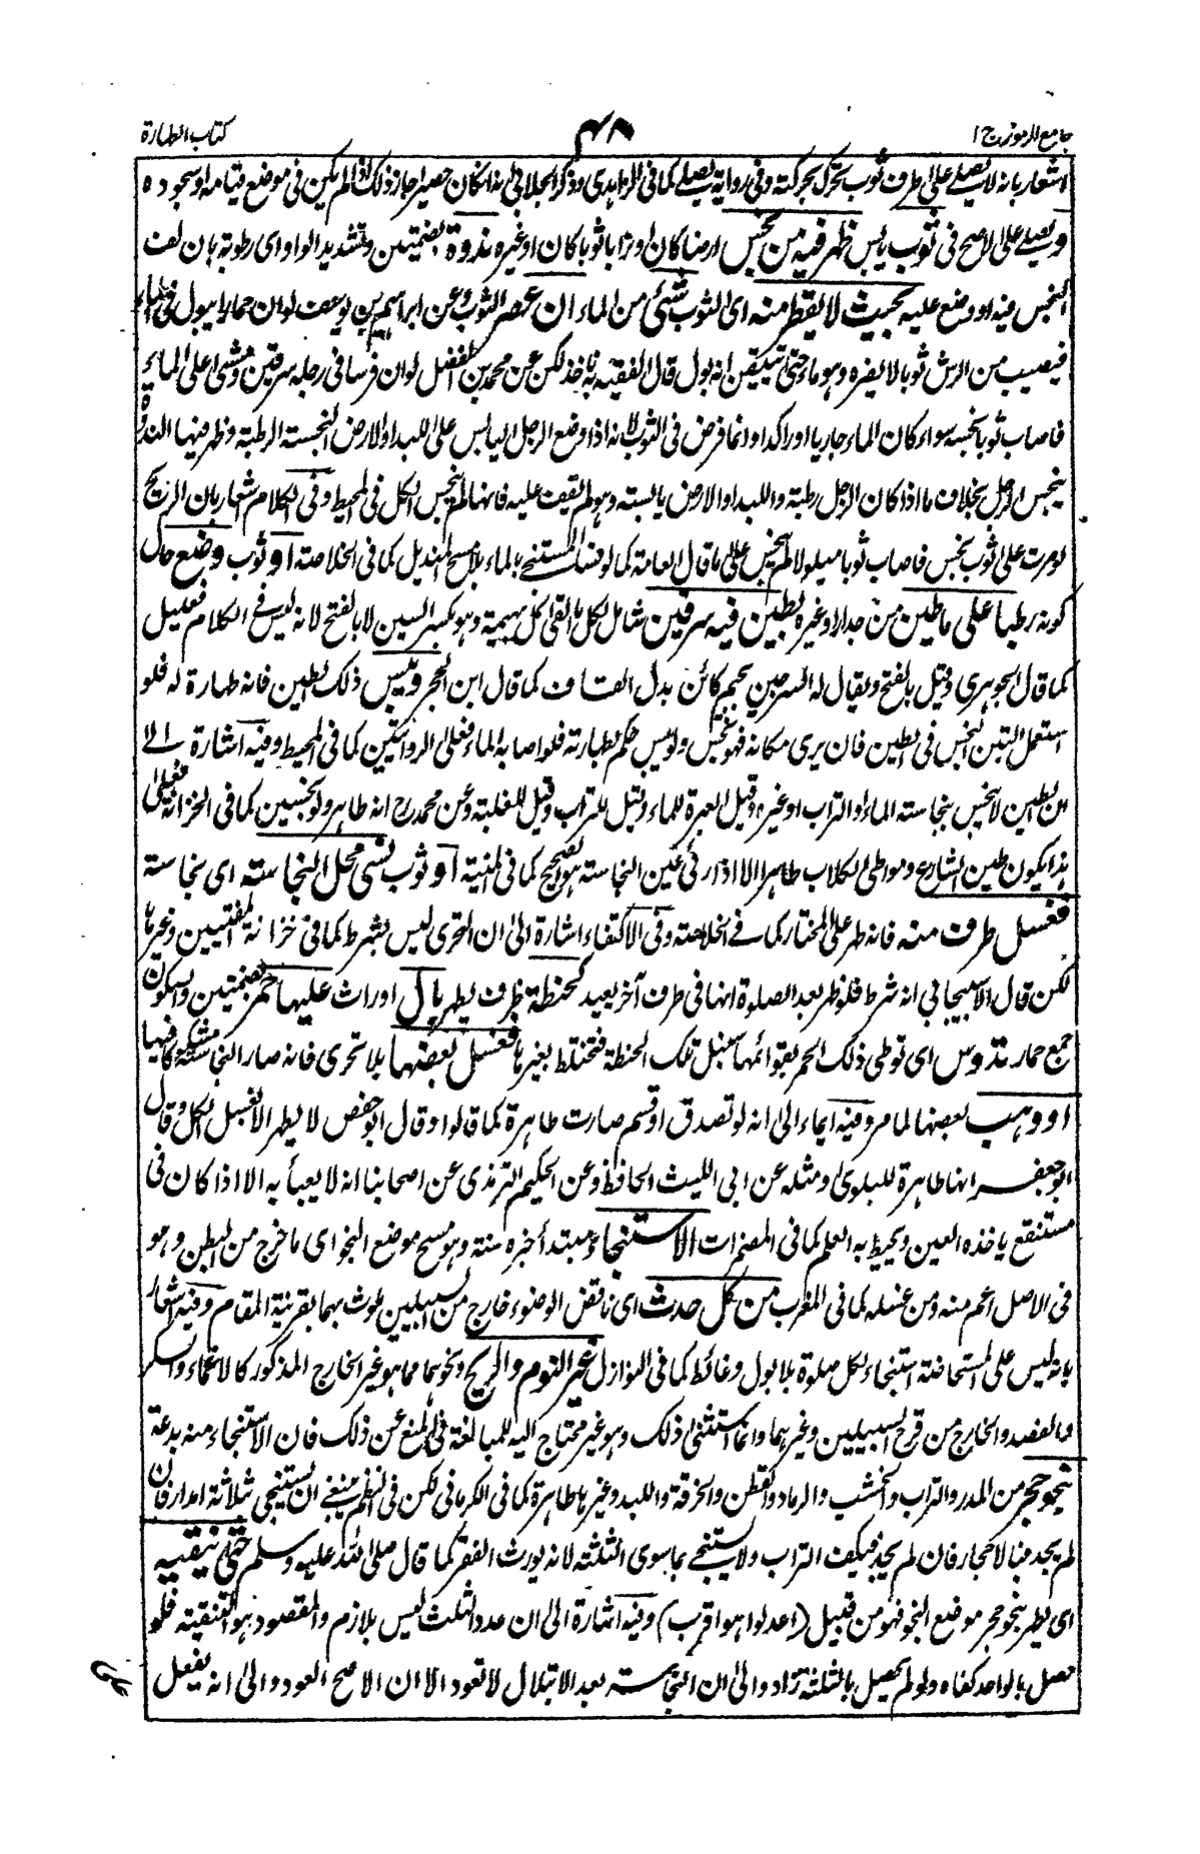 جامع الرموز ج ١
٤٨
كتاب الطهارة
اشعار بانه لا يصلے على طرف ثوب يتحرك بحركته وفى رواية يصلے كما فى الزاهدى وذكر الجلابى انه ان كان حصيرا جاز ذلك اذا لم يكن فى موضع قيامه او سجوده
ويصلے على الاصح فى ثوب يابس ظهر فيه من نجس ارضا كان او ترابا او ثوبا كان او غيره ندوة بضمتين وتشديد الواو اى رطوبة بان لف
النجس فيه او وضع عليه بحيث لا يقطر منه اى الثوب شئ من الماء ان عصر الثوب وعن ابراهيم بن يوسف لو ان حمارا يبول فى الماء
فيصيب من الرش ثوبا لا يضره وهو ماء حتى تتيقن انه بول قال الفقيه به ناخذ لكن عن محمد بن الفضل لو ان فرسا فى رجله سرقين ومشى على الماء
فاصاب ثوبا نجسه سواء كان الماء جاريا او راكدا وانما فرض فى الثوب لانه اذا وضع الرجل اليابس على اللبد او الارض النجسة الرطبة وظهر منها الندوة
ينجس الرجل بخلاف ما اذا كان الرجل رطبة واللبد او الارض يابسة وهو لم يقف عليه فانها لم ينجس الكل فى المحيط وفى الكلام اشعار بان الريح
لو مرت على ثوب نجس فاصاب ثوبا مبلولا لم ينجس على ما قال العامة كما لو فسا المستنجے بالماء بلا مسح المنديل كما فى الخلاصة او ثوب وضع حال
كونه رطبا على ما طين من جدار او غيره بطين فيه سرقين شامل لكل ما القى كل بهيمة وهو بكسر السين لا بالفتح لانه ليس فے الكلام فعليل
كما قال الجوهرى وقيل بالفتح ويقال له السرجين بجيم كائن بدل القاف كما قال ابن الحجر ويبس ذلك الطين فانه طهارة له فلو
استعمل التبن النجس فى الطين فان يرى مكانه فهو نجس وليبس حكم بطهارته فلو اصابه الماء فعلى الروايتين كما فى المحيط وفيه اشارة الے
ان الطين لا ينجس بنجاسة الماء او التراب او غيره وقيل العبرة للماء وقيل للتراب وقيل للغلبة وعن محمد رح انه طاهر ولو نجسين كما فى الخزانة فعلى
هذا يكون طين الشارع ومواطئ الكلاب طاهرا الا اذا رئى عين النجاسة هو الصحيح كما فى المنية او ثوب نسى محل النجاسة اى نجاسة
فغسل طرف منه فانه طهر على المختار كما فے الخلاصة وفى الاكتفاء اشارة الى ان التحرى ليس بشرط كما فى خزانة المفتيين وغيرها
لكن قال الاسبيجابى انه شرط فلو ظهر بعد الصلوة انها فى طرف آخر يعيد كحنطة طرف ليطهر بال اوراث عليها حمر بضمتين والسكون
جمع حمار تدوس اى توطى ذلك الحمر بقوائمها سنبل تلك الحنطة فتختلط بغيرها فغسل بعضها بلا تحرى فانه صار النجاسة مشكوكا فيها
او وهب بعضها لما مر وفيه ايماء الى انه لو تصدق او قسم صارت طاهرة كما قالوا وقال ابو حفص لا يطهر الا بغسل الكل وقال
ابو جعفر انها طاهرة للبلوى ومثله عن ابى الليث الحافظ وعن الحكيم الترمذى عن اصحابنا انه لا يعبأ به الا اذا كان فى
مستنقع ياخذه العين ويحيط به العلم كما فى المضمرات الاستنجاء مبتدأ خبره سنة وهو مسح موضع النجو اى ما خرج من البطن وهو
فى الاصل اعم منه ومن غسله كما فى المغرب من كل حدث اى ناقض الوضوء خارج من السبيلين ملوث بهما بقرينة المقام وفيه اشعار
بانه ليس على المستحاضة استنجاء لكل صلوة بلا بول وغائط كما فى النوازل غير النوم والريح ونحوهما مما هو غير الخارج المذكور كالاغماء والسكر
والفصد والخارج من قرح السبيلين وغيرهما وانما استثنى ذلك وهو غير محتاج اليه للمبالغة فى المنع عن ذلك فان الاستنجاء منه بدعة
بنحو حجر من المدر والتراب والخشب والرماد والقطن والخرقة واللبد وغيرها طاهرة كما فى الكرمانى لكن فى النظم ينبغى ان يستنجى بثلاثة امدار فان
لم يجد فبالاحجار فان لم يجد فبكف التراب ولا يستنجے بما سوى الثلثة لانه يورث الفقر كما قال صلى الله عليه وسلم حتى ينقيه
اى يطهر بنحو حجر موضع النجو فهو من قبيل (اعدلوا هو اقرب) وفيه اشارة الى ان عدد الثلث ليس بلازم والمقصود هو التنقية فلو
حصل بالواحد كفاه ولو لم يحصل بالثلثة زاد والى ان النجاسة بعد الابتلال لا تعود الا ان الاصح العود والى انه يفعل